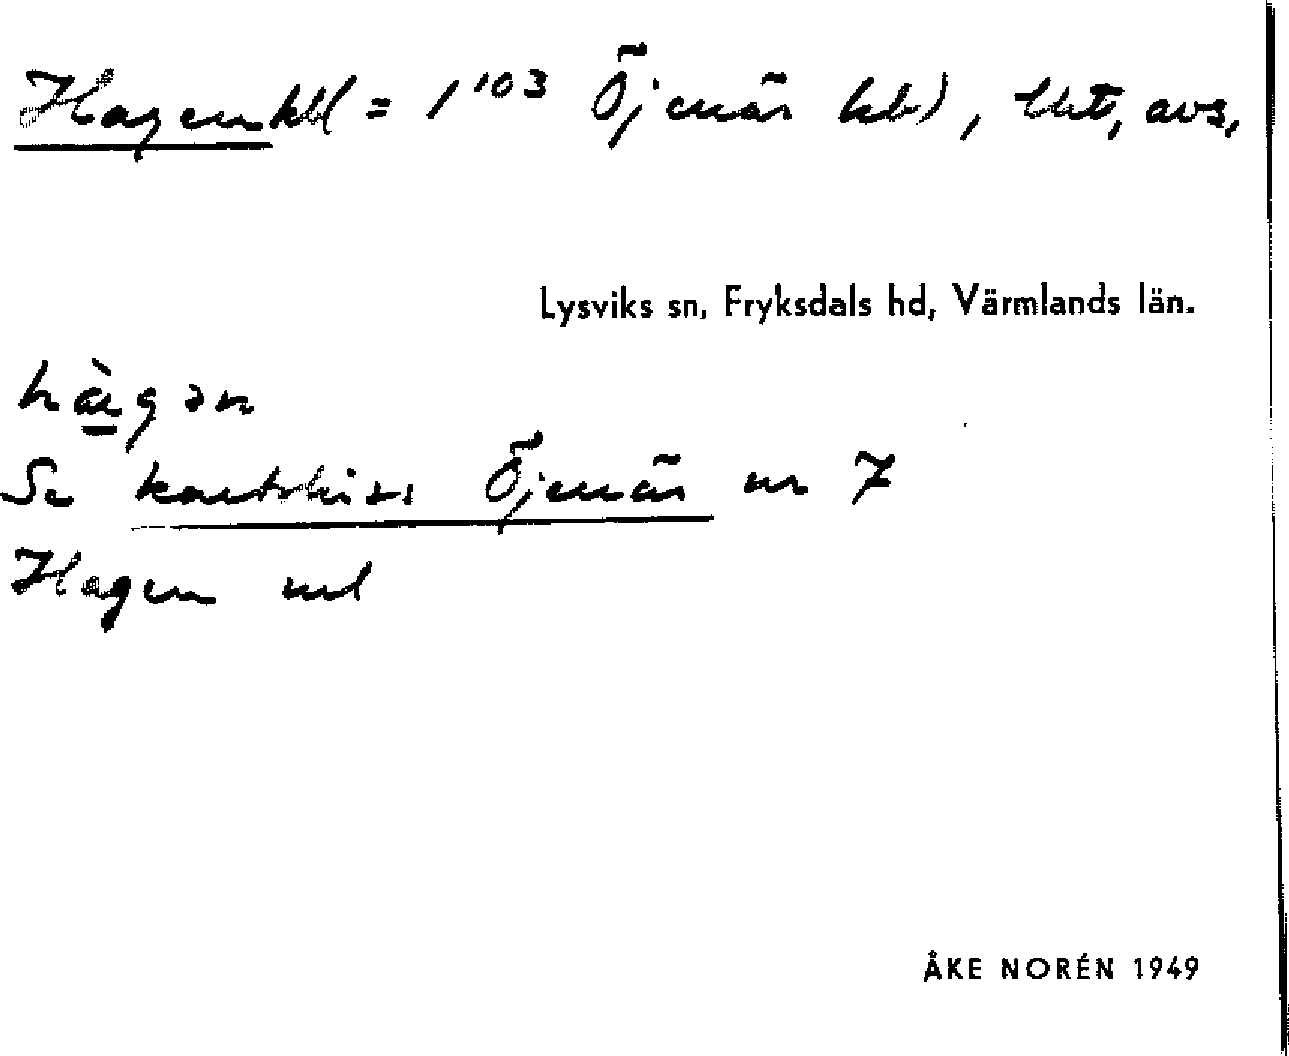 Hagen kbl = 1¹⁰³ Öjenäs kbl), lht, avs,
Lysviks sn, Fryksdals hd, Värmlands län.
hàgən
Se Öjenäs nr 7
Hagen
ÅKE NORÉN 1949